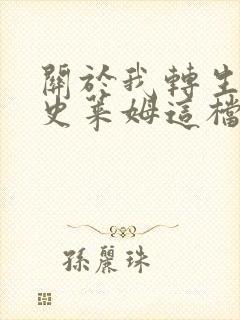 關於我轉生
史萊姆這檔
孫麗珠